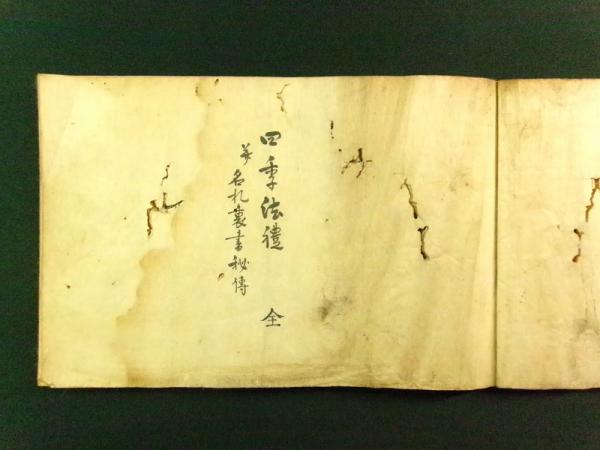 四季法禮 全
并名札裏書秘傳